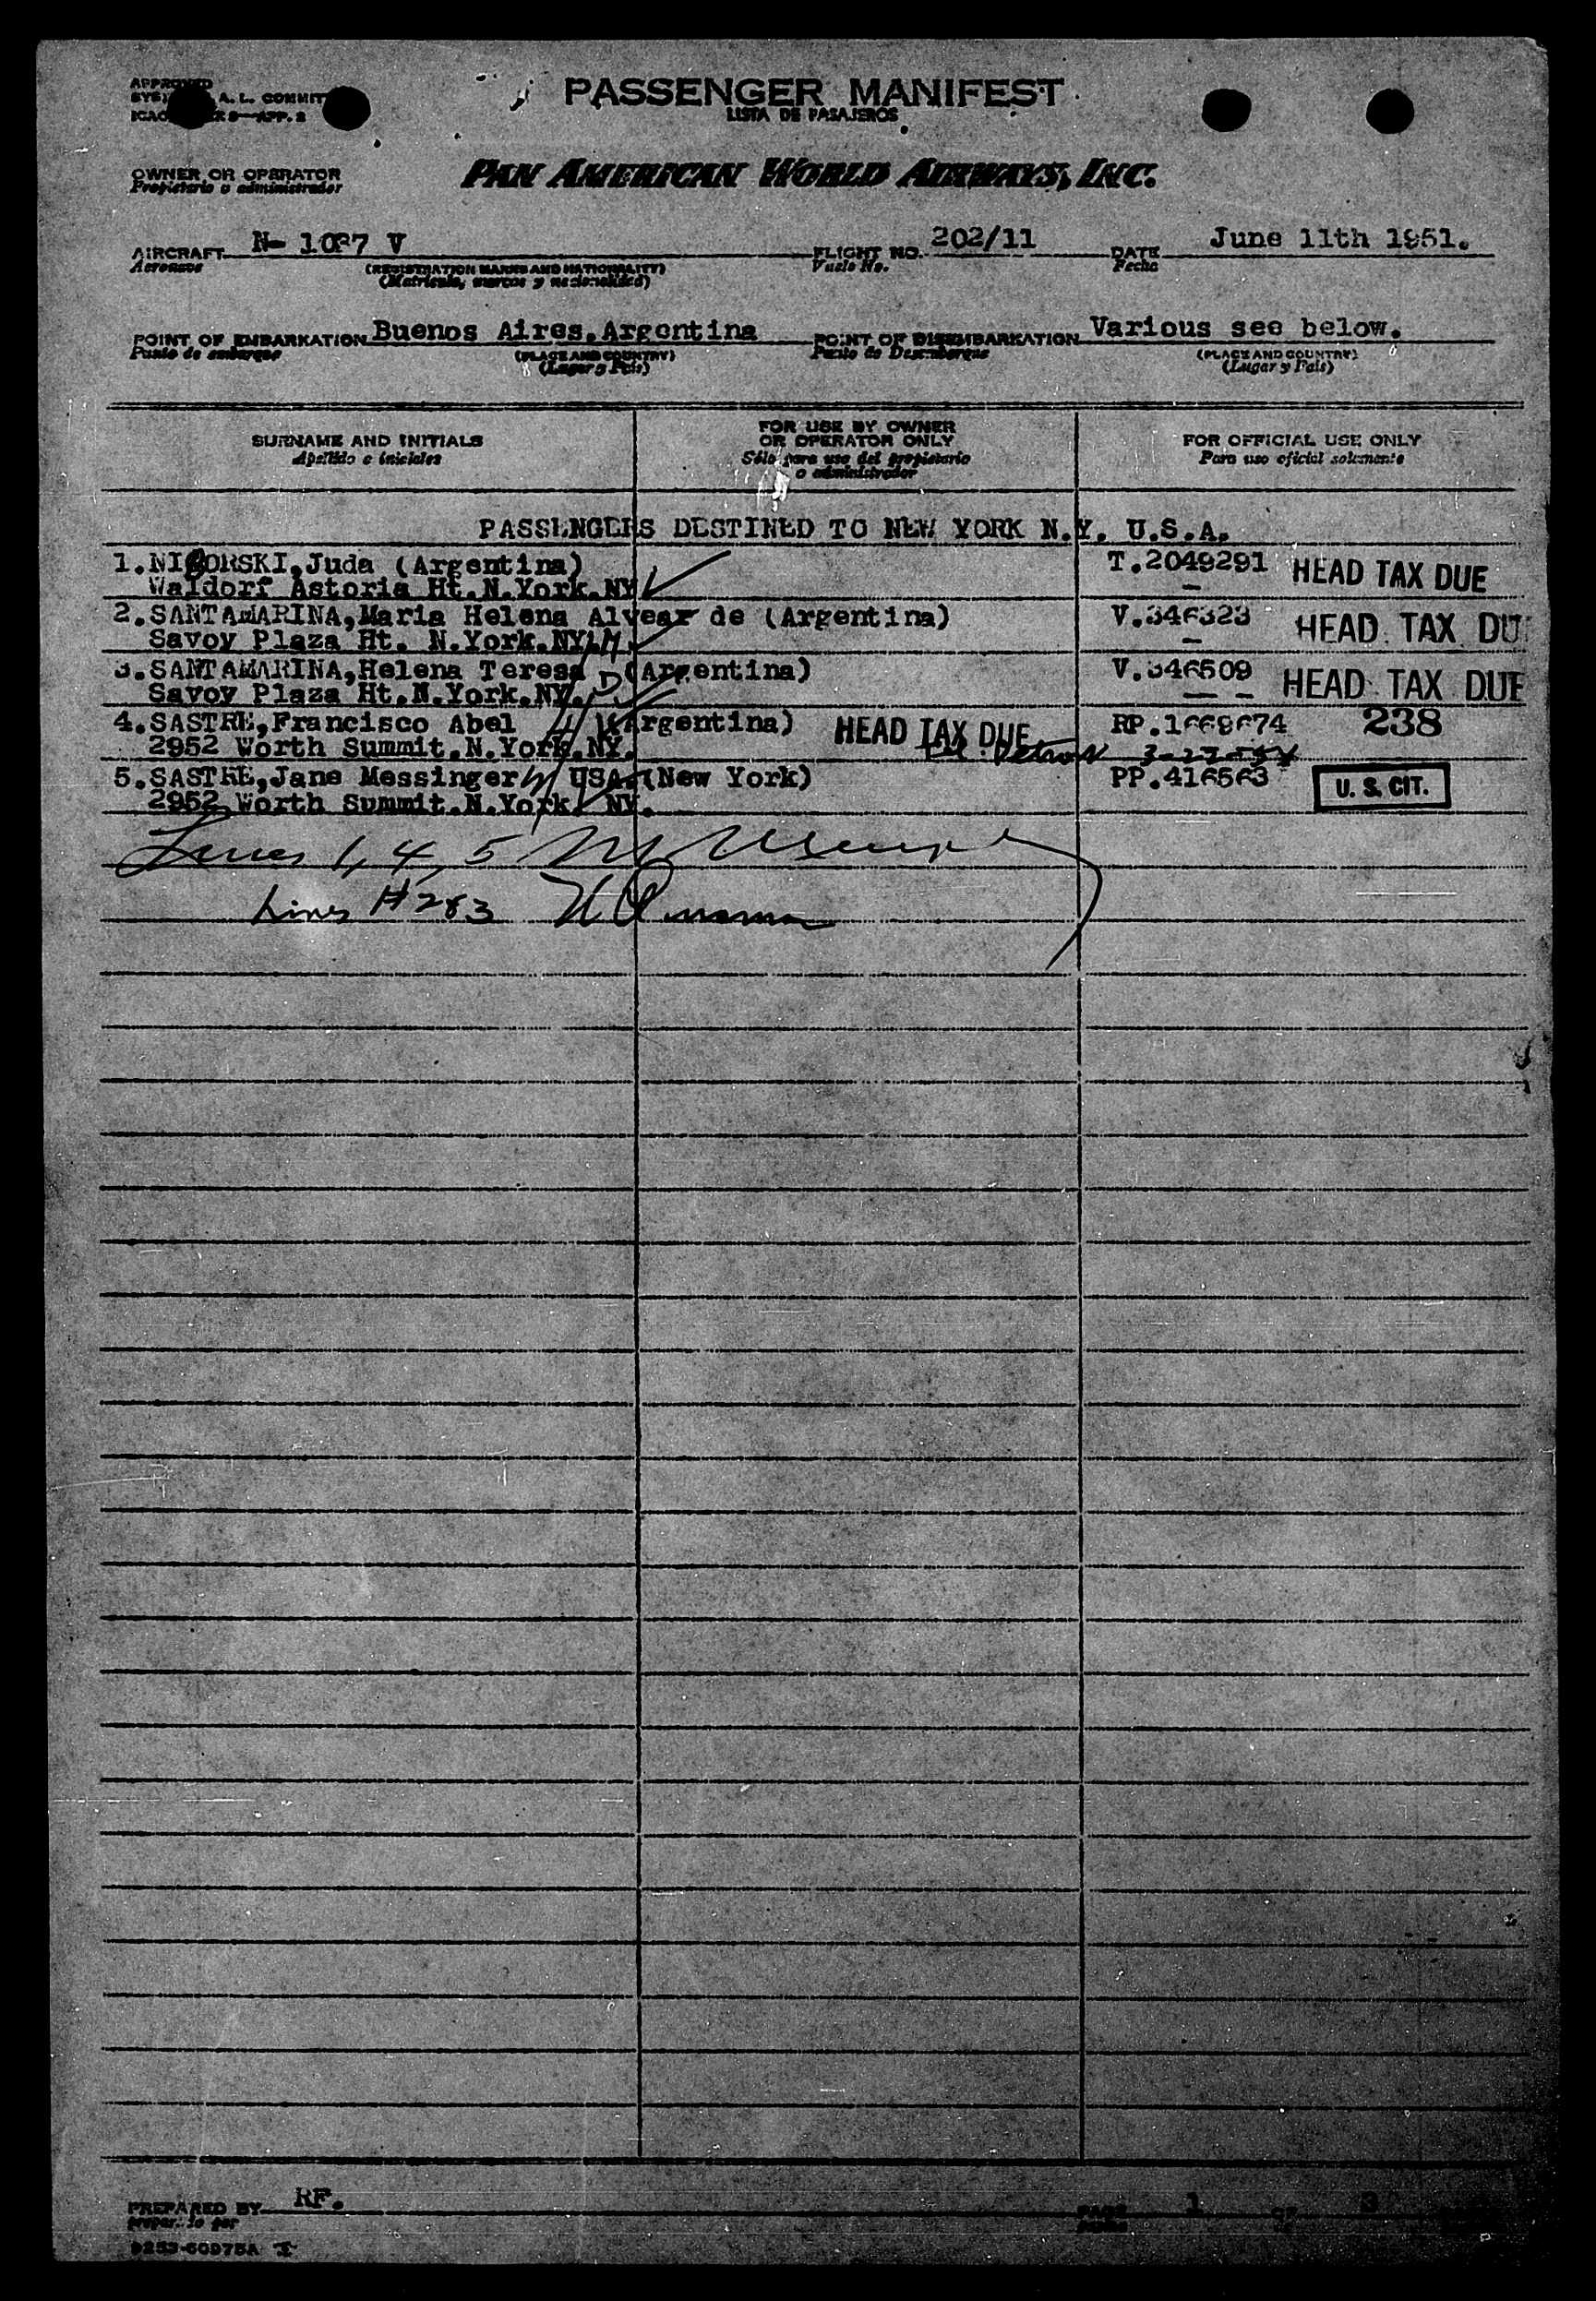 APPROVED
A. L. COMMIT
ICAO APP. 2
PASSENGER MANIFEST
LISTA DE PASAJEROS
OWNER OR OPERATOR
Propietario o administrador
PAN AMERICAN WORLD AIRWAYS, INC.
AIRCRAFT N- 1027 V FLIGHT NO. 202/11 DATE June 11th 1951.
Aeronave (REGISTRATION MARKS AND NATIONALITY) Vuelo No. Fecha
(Matricula, marcas y nacionalidad)
POINT OF EMBARKATION Buenos Aires.Argentina POINT OF DISEMBARKATION Various see below.
Punto de embarque (PLACE AND COUNTRY) Punto de Desembarque (PLACE AND COUNTRY)
(Lugar y Pais) (Lugar y Pais)
SURNAME AND INITIALS FOR USE BY OWNER OR OPERATOR ONLY FOR OFFICIAL USE ONLY
Apellido e iniciales Sólo para uso del propietario o administrador Para uso oficial solamente
PASSENGERS DESTINED TO NEW YORK N.Y. U.S.A.
1.NIGORSKI,Juda (Argentina) T.2049291 HEAD TAX DUE
Waldorf Astoria Ht.N.York.NY
2.SANTAMARINA,Maria Helena Alvear de (Argentina) V.346323 HEAD TAX DU
Savoy Plaza Ht. N.York.NY.
3.SANTAMARINA,Helena Teresa (Argentina) V.346509 HEAD TAX DUE
Savoy Plaza Ht.N.York.NY.
4.SASTRE,Francisco Abel (Argentina) HEAD TAX DUE RP.1669674 238
2952 Worth Summit.N.York.NY.
5.SASTRE,Jane Messinger USA.(New York) PP.416563 U. S. CIT.
2952 Worth Summit.N.York. NY.
Lines 1, 4, 5
Lines # 2&3
PREPARED BY RF. PAGE 1 OF 3